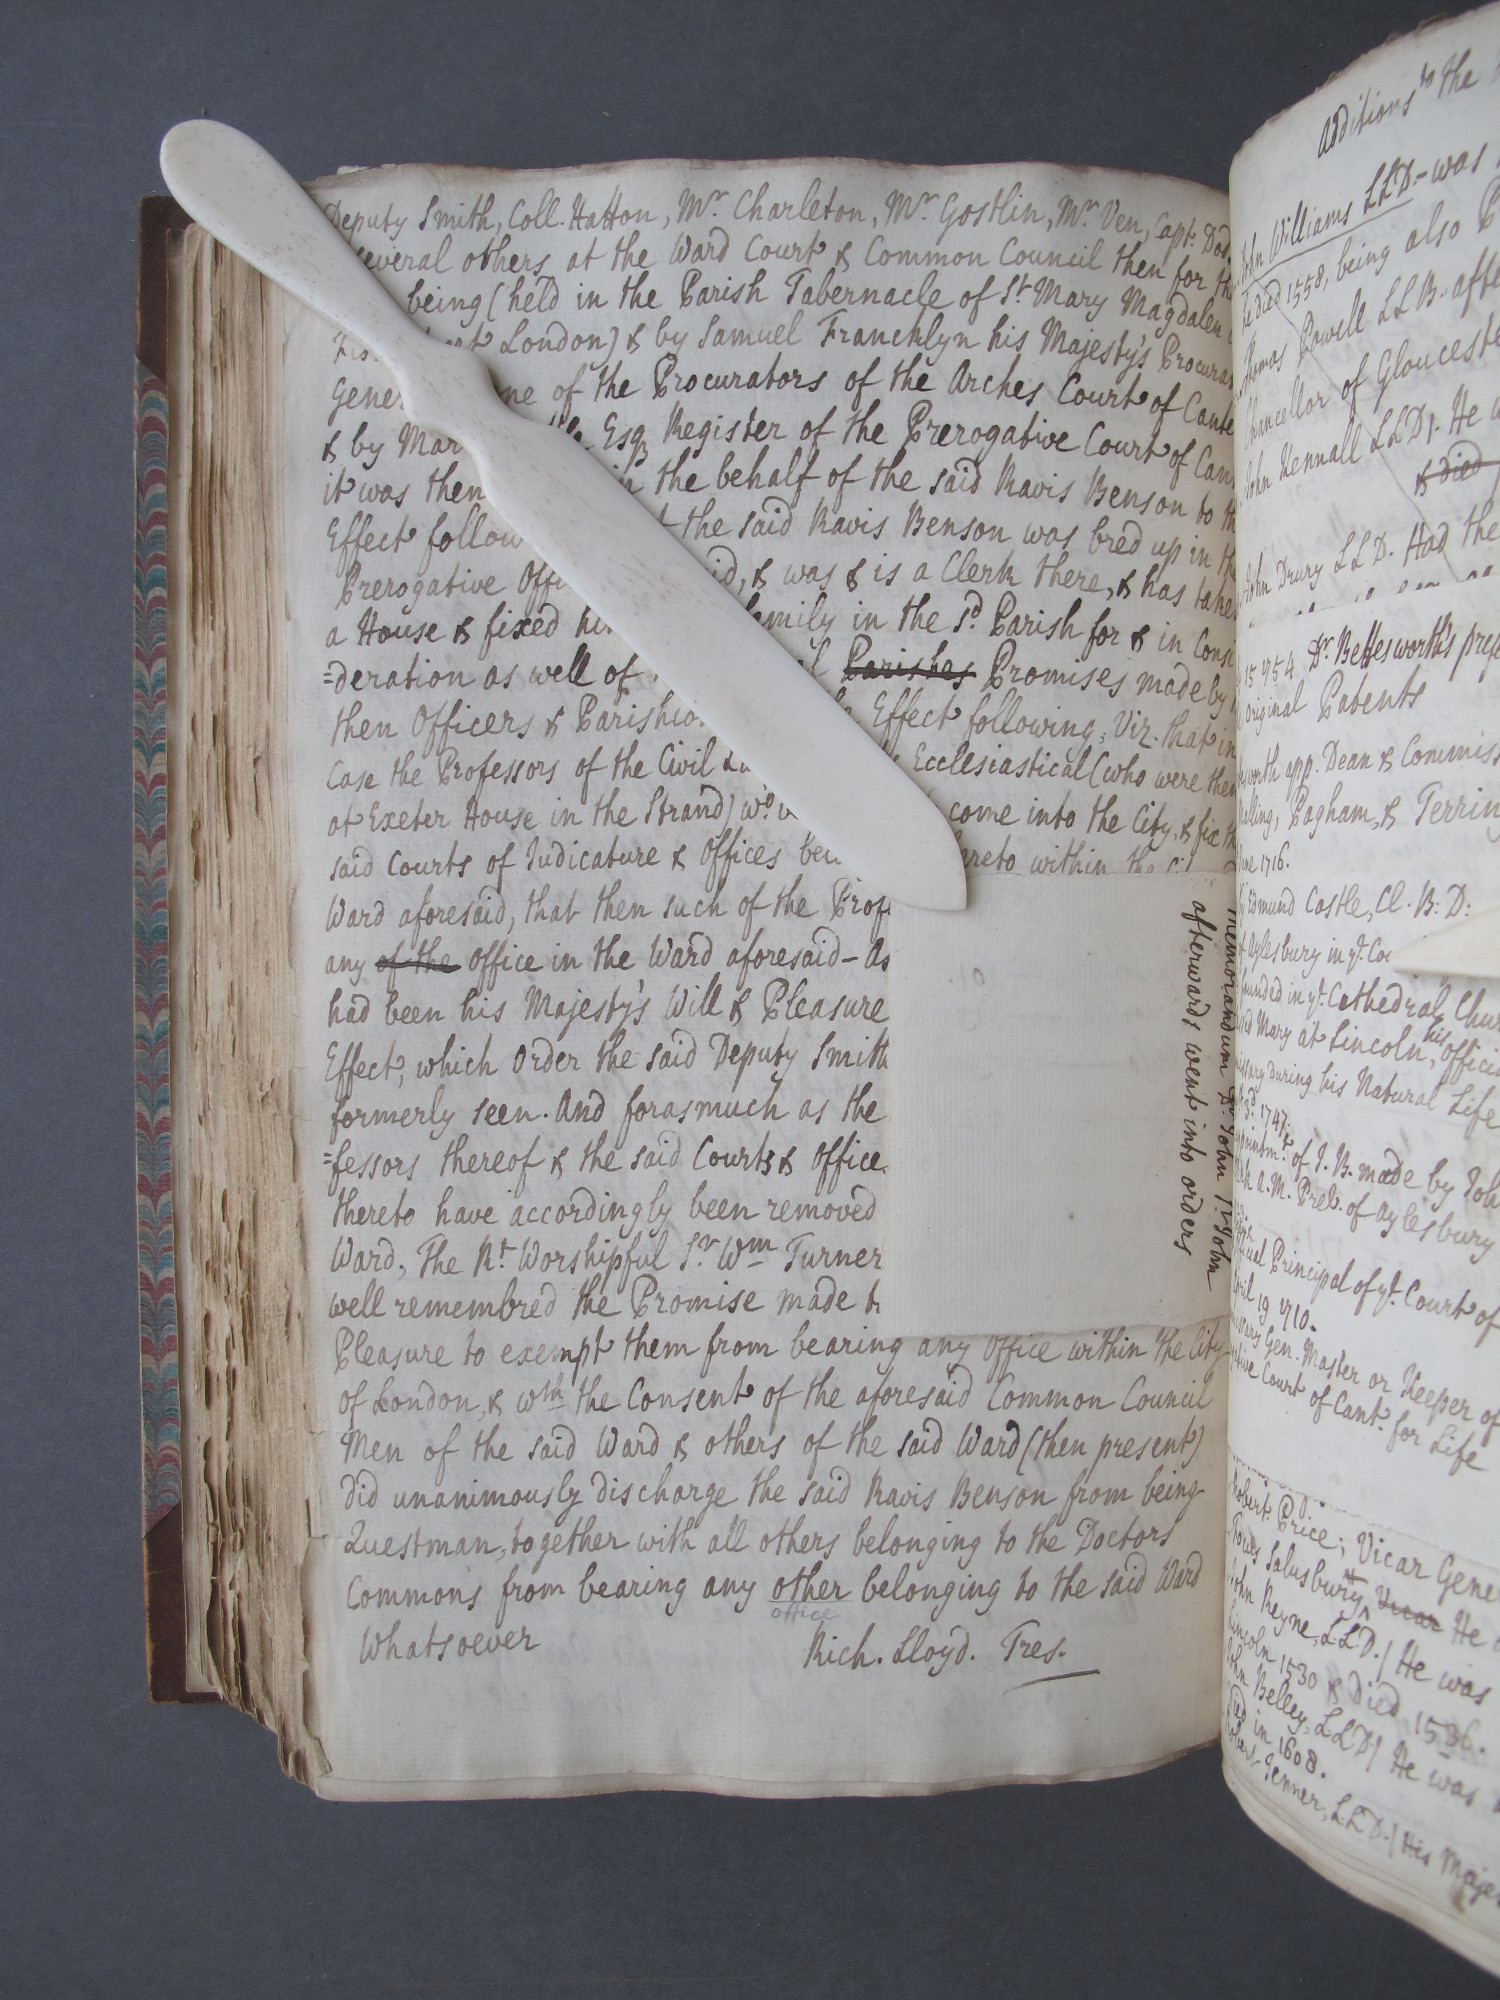 Deputy Smith, Coll. Hatton, Mr. Charleton, Mr. Gostlin, Mr. Ven, Capt.
several others at the Ward Court & Common Council then for the
being (held in the Parish Tabernacle of St Mary Magdalen
London) & by Samuel Francklyn his Majesty's
of the Procurators of the Arches Court of
& by Esq Register of the Prerogative Court of
it was then in the behalf of the said Ravis Benson to
Effect the said Ravis Benson was bred up in
Prerogative & was & is a Clerk there, & has
a House & fixed family in the Sd. Parish for & in
=deration as well of Parishes Promises made by
then Officers & Effect following, Viz. that in
Case the Professors of the Civil Ecclesiastical (who were then
at Exeter House in the Strand) come into the City, & fix
said Courts of Judicature & Offices within the
Ward aforesaid, that then such of the
any of the office in the Ward aforesaid - As
had been his Majesty's Will & Pleasure
Effect, which Order the said Deputy Smith
formerly seen. And forasmuch as the
=fessors thereof & the said Courts & Office
thereto have accordingly been removed
Ward, The Rt. Worshipful Sr. Wm Turner
well remembred the Promise made
Pleasure to exempt them from bearing any Office within the City
of London, & wth the Consent of the aforesaid Common Council
Men of the said Ward & others of the said Ward (then present)
did unanimously discharge the said Ravis Benson from being
Questman, together with all others belonging to the Doctors
Commons from bearing any other belonging to the said Ward
office
Whatsoever
Rich. Lloyd. Tres.
memorandum Dr. John St. John
afterwards went into orders
Additions to the
John Williams LLD - was
he died 1558, being also
Powell LLB. after
Chancellor of
John Kennall LLD. He
& died
John Drury LLD. Had the
15 1754 Dr. Bettesworth's
original Patents
app. Dean & Commiss
Pagham, &
1716.
Edmund Castle, Cl. B: D:
Aylesbury in ye.
founded in ye. Cathedral
Mary at Lincoln, his
during his Natural Life
1747.
of J. B. made by
A. M. Preb. of Aylesbury
Principal of ye. Court of
19 1710.
Gen. Master or Keeper of
Court of Cant. for Life
Robert Price, Vicar
Salusbury, Vicar He
John Keyne, LLD. / He was
Lincoln 1530 & Died 1536.
John Belley, LLD / He was
Died in 1608.
Robert Jenner, LLD. / His